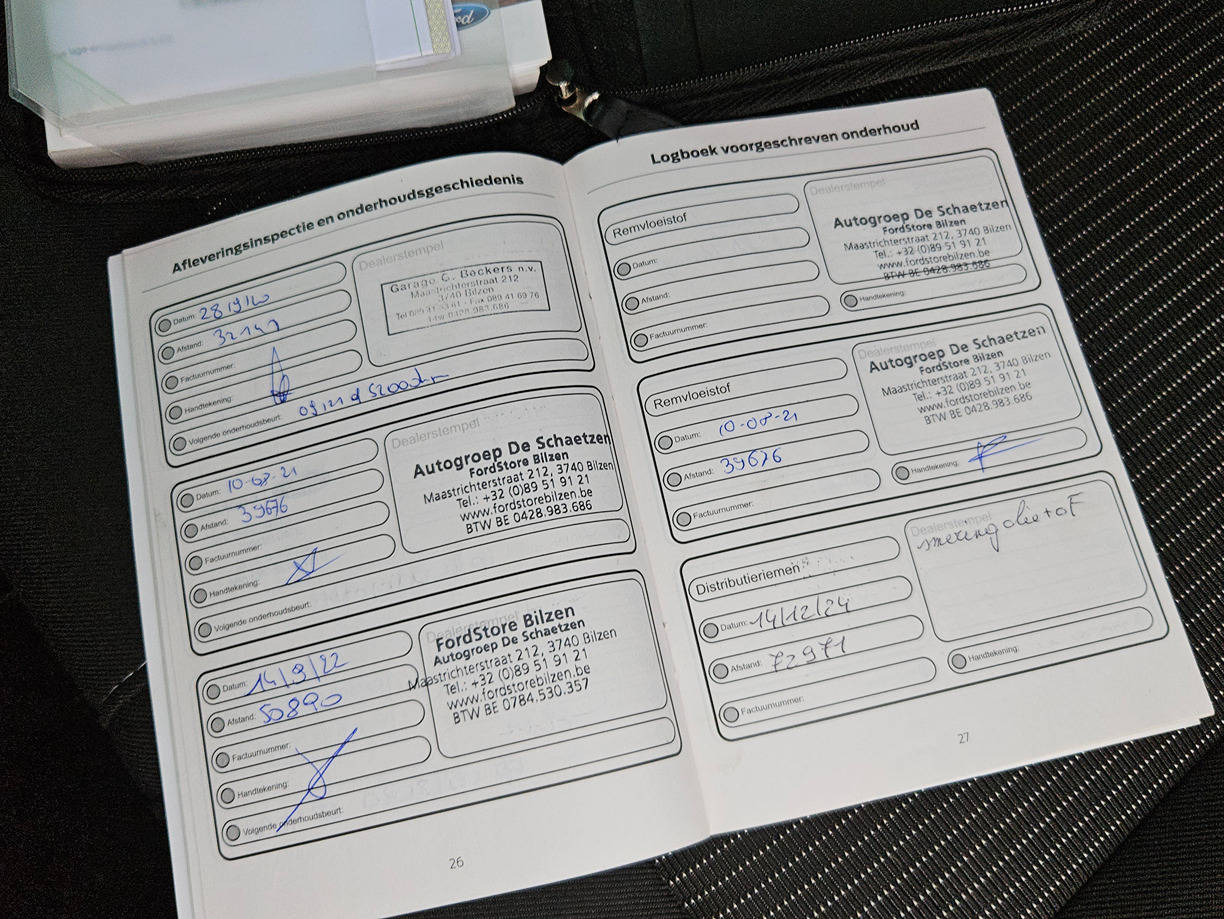 Ford
Afleveringsinspectie en onderhoudsgeschiedenis
Datum: 28/9/20
Afstand: 32141
Factuurnummer:
Handtekening:
Volgende onderhoudsbeurt:
Dealerstempel
Garage G. Beckers n.v.
Maastrichterstraat 212
3740 Bilzen
Fax 089 41 69 76
0428.983.686
Datum: 10-08-21
Afstand: 39676
Factuurnummer:
Handtekening:
Volgende onderhoudsbeurt:
Dealerstempel
Autogroep De Schaetzen
FordStore Bilzen
Maastrichterstraat 212, 3740 Bilzen
Tel.: +32 (0)89 51 91 21
www.fordstorebilzen.be
BTW BE 0428.983.686
Datum: 14/9/22
Afstand: 50890
Factuurnummer:
Handtekening:
Volgende onderhoudsbeurt:
Dealerstempel
FordStore Bilzen
Autogroep De Schaetzen
Maastrichterstraat 212, 3740 Bilzen
Tel.: +32 (0)89 51 91 21
www.fordstorebilzen.be
BTW BE 0784.530.357
26
Logboek voorgeschreven onderhoud
Remvloeistof
Datum:
Afstand:
Factuurnummer:
Dealerstempel
Autogroep De Schaetzen
FordStore Bilzen
Maastrichterstraat 212, 3740 Bilzen
Tel.: +32 (0)89 51 91 21
www.fordstorebilzen.be
BTW BE 0428.983.686
Handtekening:
Remvloeistof
Datum: 10-08-21
Afstand: 39676
Factuurnummer:
Dealerstempel
Autogroep De Schaetzen
FordStore Bilzen
Maastrichterstraat 212, 3740 Bilzen
Tel.: +32 (0)89 51 91 21
www.fordstorebilzen.be
BTW BE 0428.983.686
Handtekening:
Distributieriemen
Datum: 14/12/24
Afstand: 72971
Factuurnummer:
Dealerstempel
Handtekening:
27